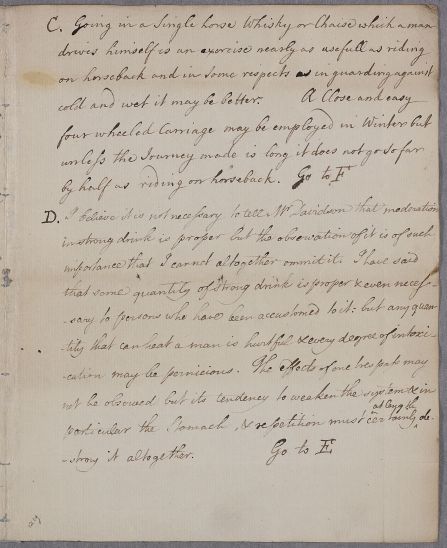 C. Going in a Single horse Whisky or Chaise which a man
drives himself is an exercise nearly as usefull as riding
on horseback and in some respects as in guarding against
cold and wet it may be better. A Close and easy
four wheeled Carriage may be employed in Winter but
unless the Journey made is long it does not go so far
by half as riding on horseback. Go to F
D. I believe it is not necessary to tell Mr Davidson that moderation
in strong drink is proper but the observation of it is of such
importance that I cannot altogether ommit it. I have said
that some quantity of strong drink is proper & even neces-
-sary to persons who have been accustomed to it: but any quan
tity that can heat a man is hurtful & every degree of intoxi-
-cation may be pernicious. The effects of one trespass may
not be observed but its tendency to weaken the system & in
particular the Stomach, & repetition must at length certainly de-
-stroy it altogether. Go to E